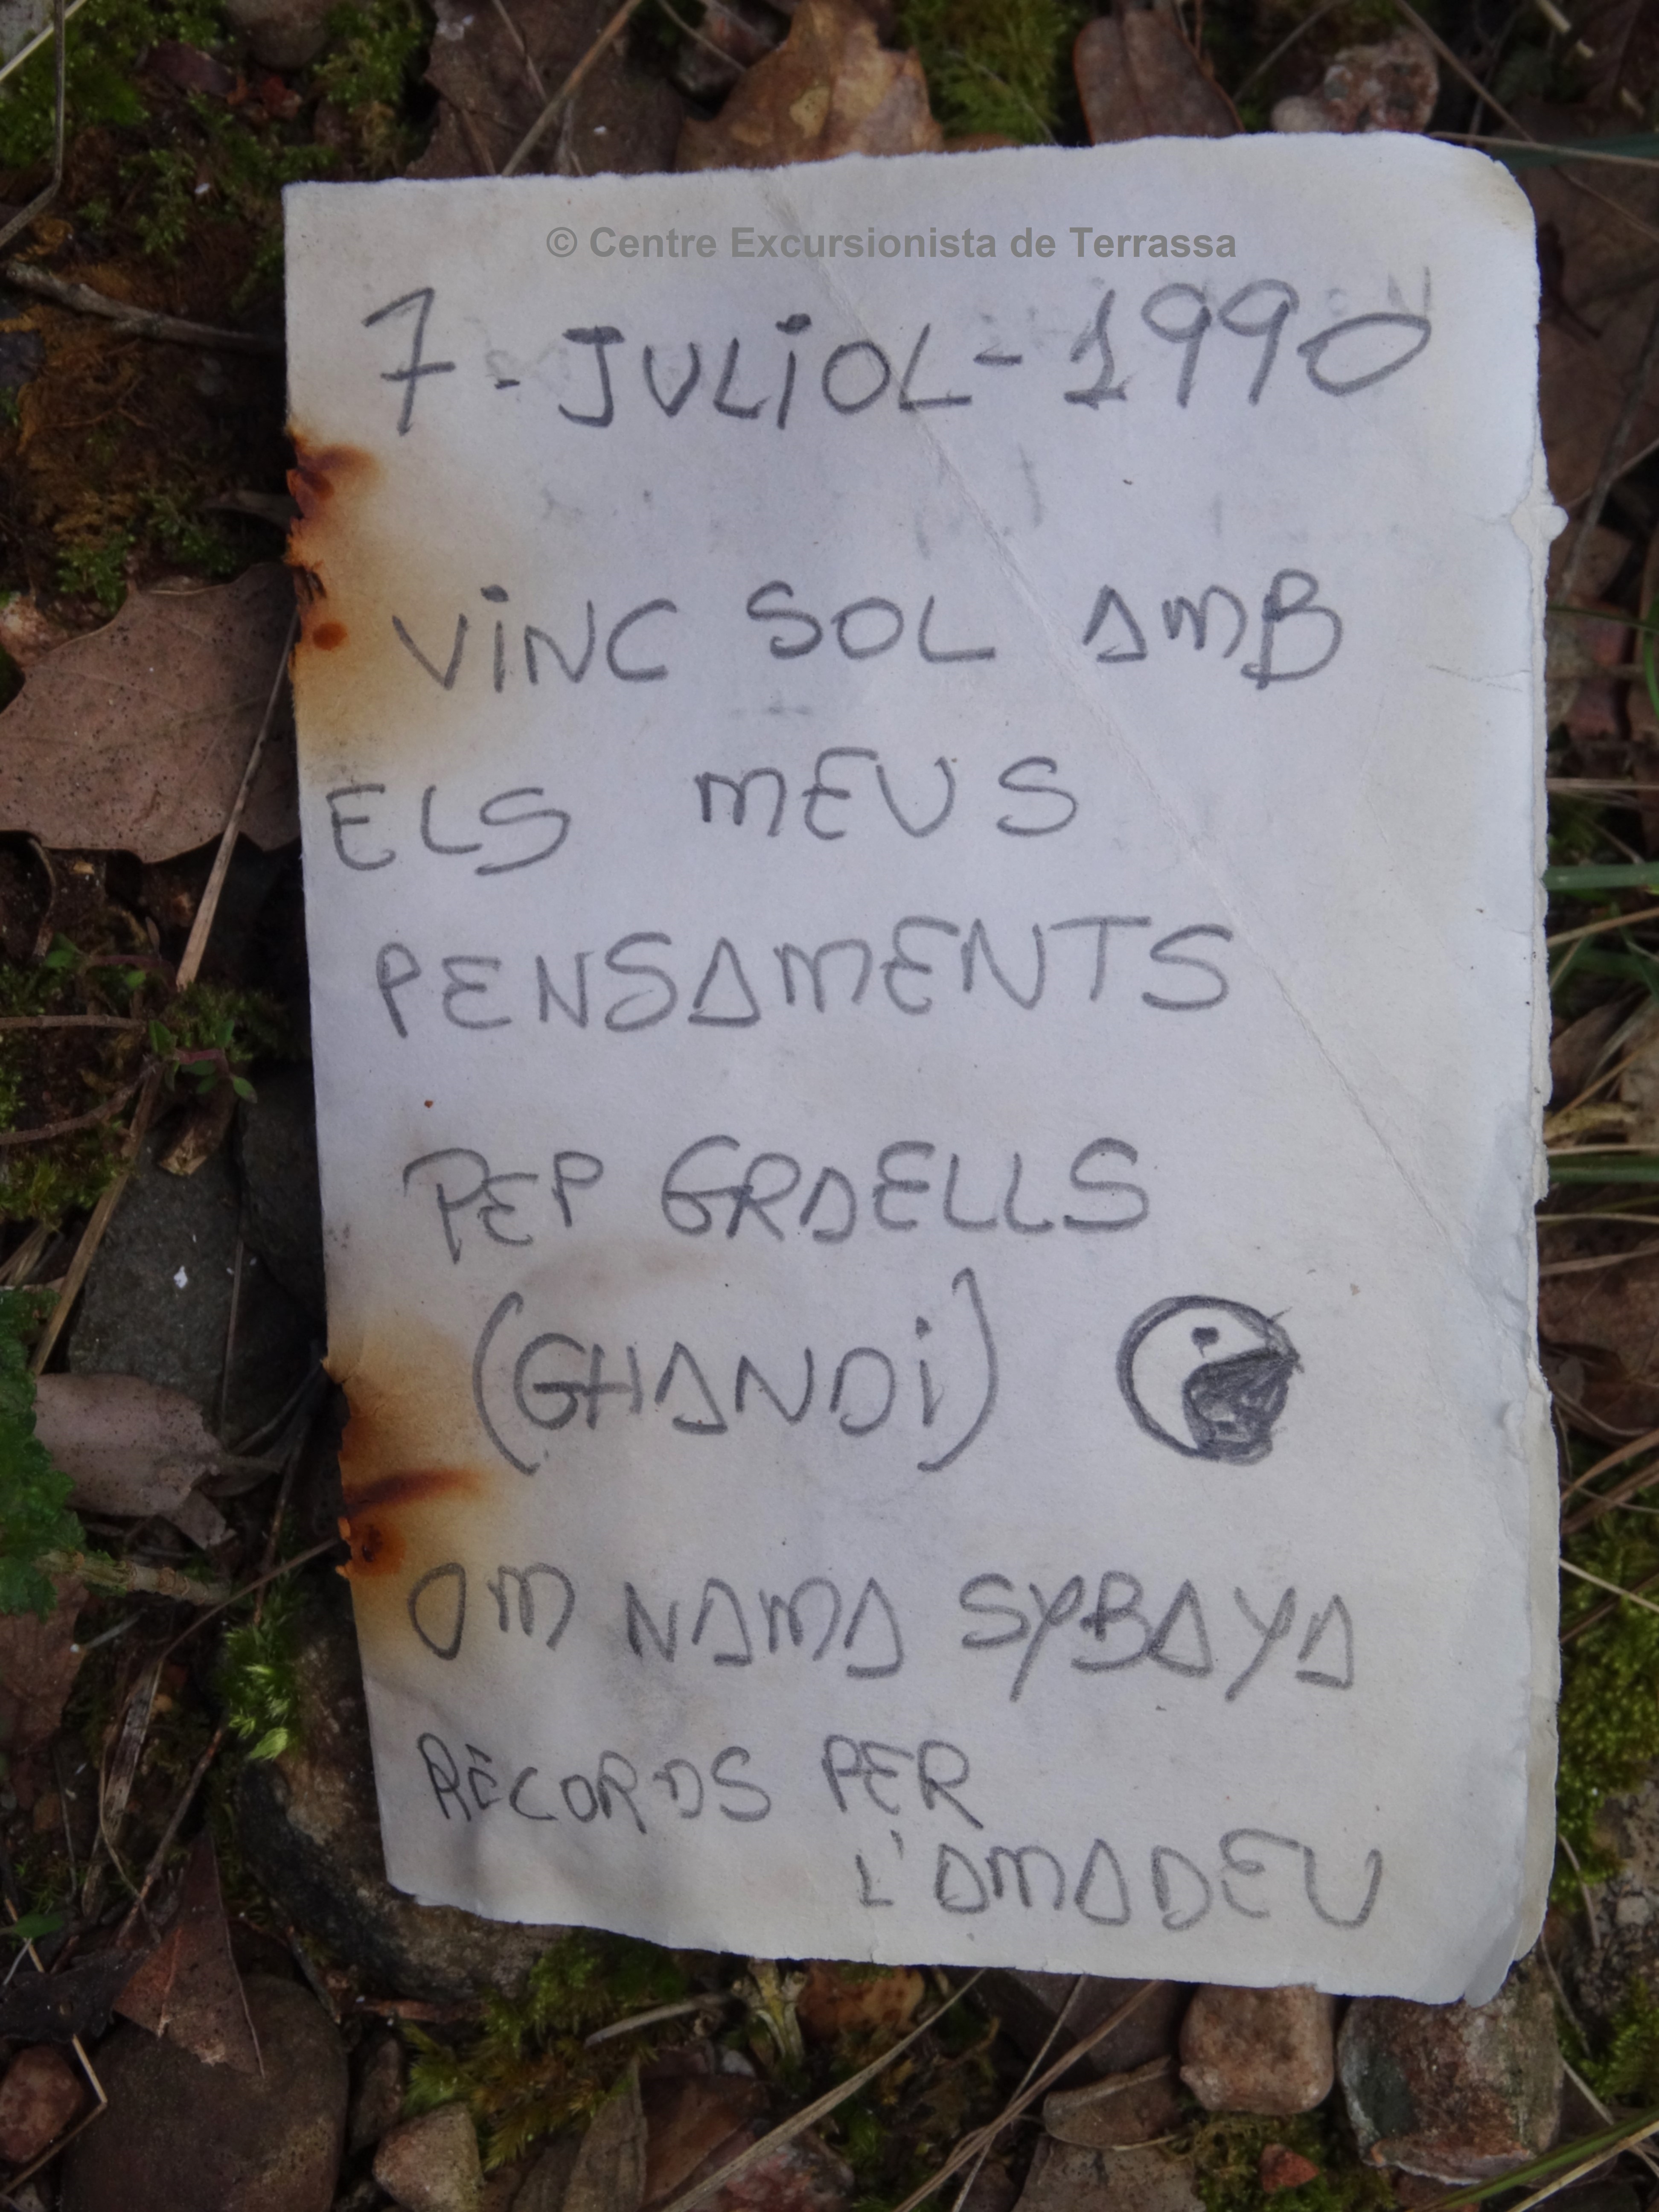 © Centre Excursionista de Terrassa
7-JULiOL-1990
ViNC SOL AMB
ELS MEUS
PENSAMENTS
PEP GRAELLS
(GHANDi)
OM NAMA SYBAYA
RECORDS PER
L'AMADEU